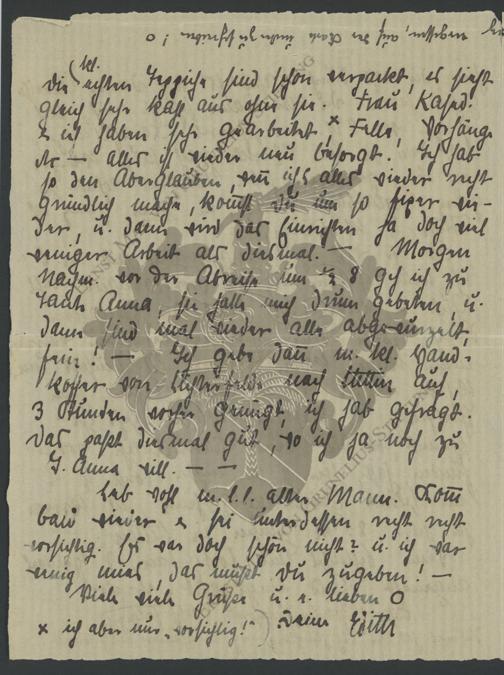 vergessen, auf der Karte Linden zu schreiben! O
kl.
Die echten Teppiche sind schon verpackt, es sieht
gleich sehr kahl aus ohne sie. Frau Kased.
& ich haben sehr gearbeitet,× Felle, Vorhänge
etc — alles ist wieder neu besorgt. Ich hab
so den Aberglauben, wenn ich alles wieder recht
gründlich mache, kommst du um so fixer wie-
der, u. dann wird das Einrichten ja doch viel
weniger Arbeit als diesmal. — Morgen
Nachm. vor der Abreise um ½ 8 geh ich zu
Tante Anna, sie hatte mich drum gebeten, u.
dann sind mal wieder alle
fein! — Ich gebe dann m. kl. Hand-
koffer von Lichterfelde nach Stettin auf,
3 Stunden vorher genügt, ich hab gefragt.
Das paßt diesmal gut, wo ich ja noch zu
T. Anna will. — —
Leb wohl m. l. l. alter Mann. Komm
bald wieder & sei unterdessen recht recht
vorsichtig. Es war doch schön nicht? u. ich war
wenig müde, das mußt du zugeben! —
Viele viele Grüße u. e. lieben O
× ich aber nur „vorsichtig!“) Deine Edith